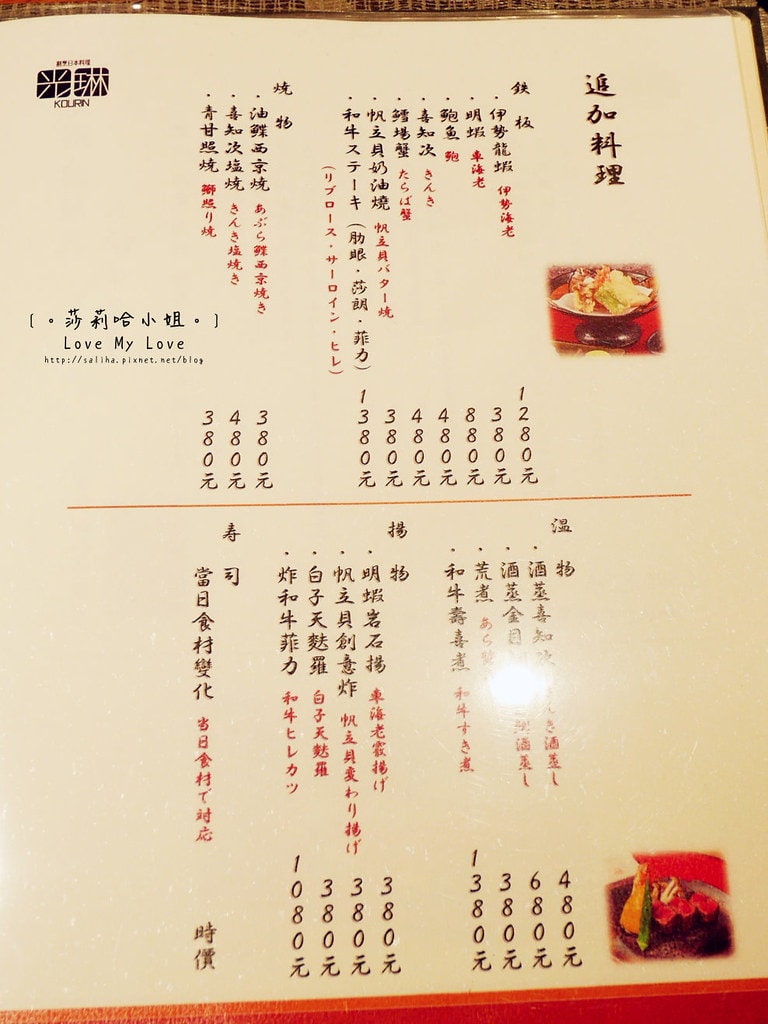 追加料理
鉄板
・伊勢龍蝦 伊勢海老 1280元
・明蝦 車海老 380元
・鮑魚 鮑 880元
・喜知次 きんき 480元
・鱈場蟹 たらば蟹 480元
・帆立貝奶油燒 帆立貝バター焼 380元
・和牛ステーキ(肋眼・莎朗・菲力) 1380元
(リブロース・サーロイン・ヒレ)
焼物
・油鰈西京焼 あぶら鰈西京焼き 380元
・喜知次塩焼 きんき塩焼き 480元
・青甘照焼 鰤照り焼 380元
割烹日本料理
光琳
KOURIN
〔。莎莉哈小姐。〕
Love My Love
http://saliha.pixnet.net/blog
温物
・酒蒸喜知次 きんき酒蒸し 480元
酒蒸金目 酒蒸し 680元
荒煮 あら 380元
・和牛壽喜煮 和牛すき煮 1380元
揚物
・明蝦岩石揚 車海老霰揚げ 380元
・帆立貝創意炸 帆立貝変わり揚げ 380元
・白子天麩羅 白子天麩羅 380元
・炸和牛菲力 和牛ヒレカツ 1080元
寿司
當日食材變化 当日食材で対応 時價